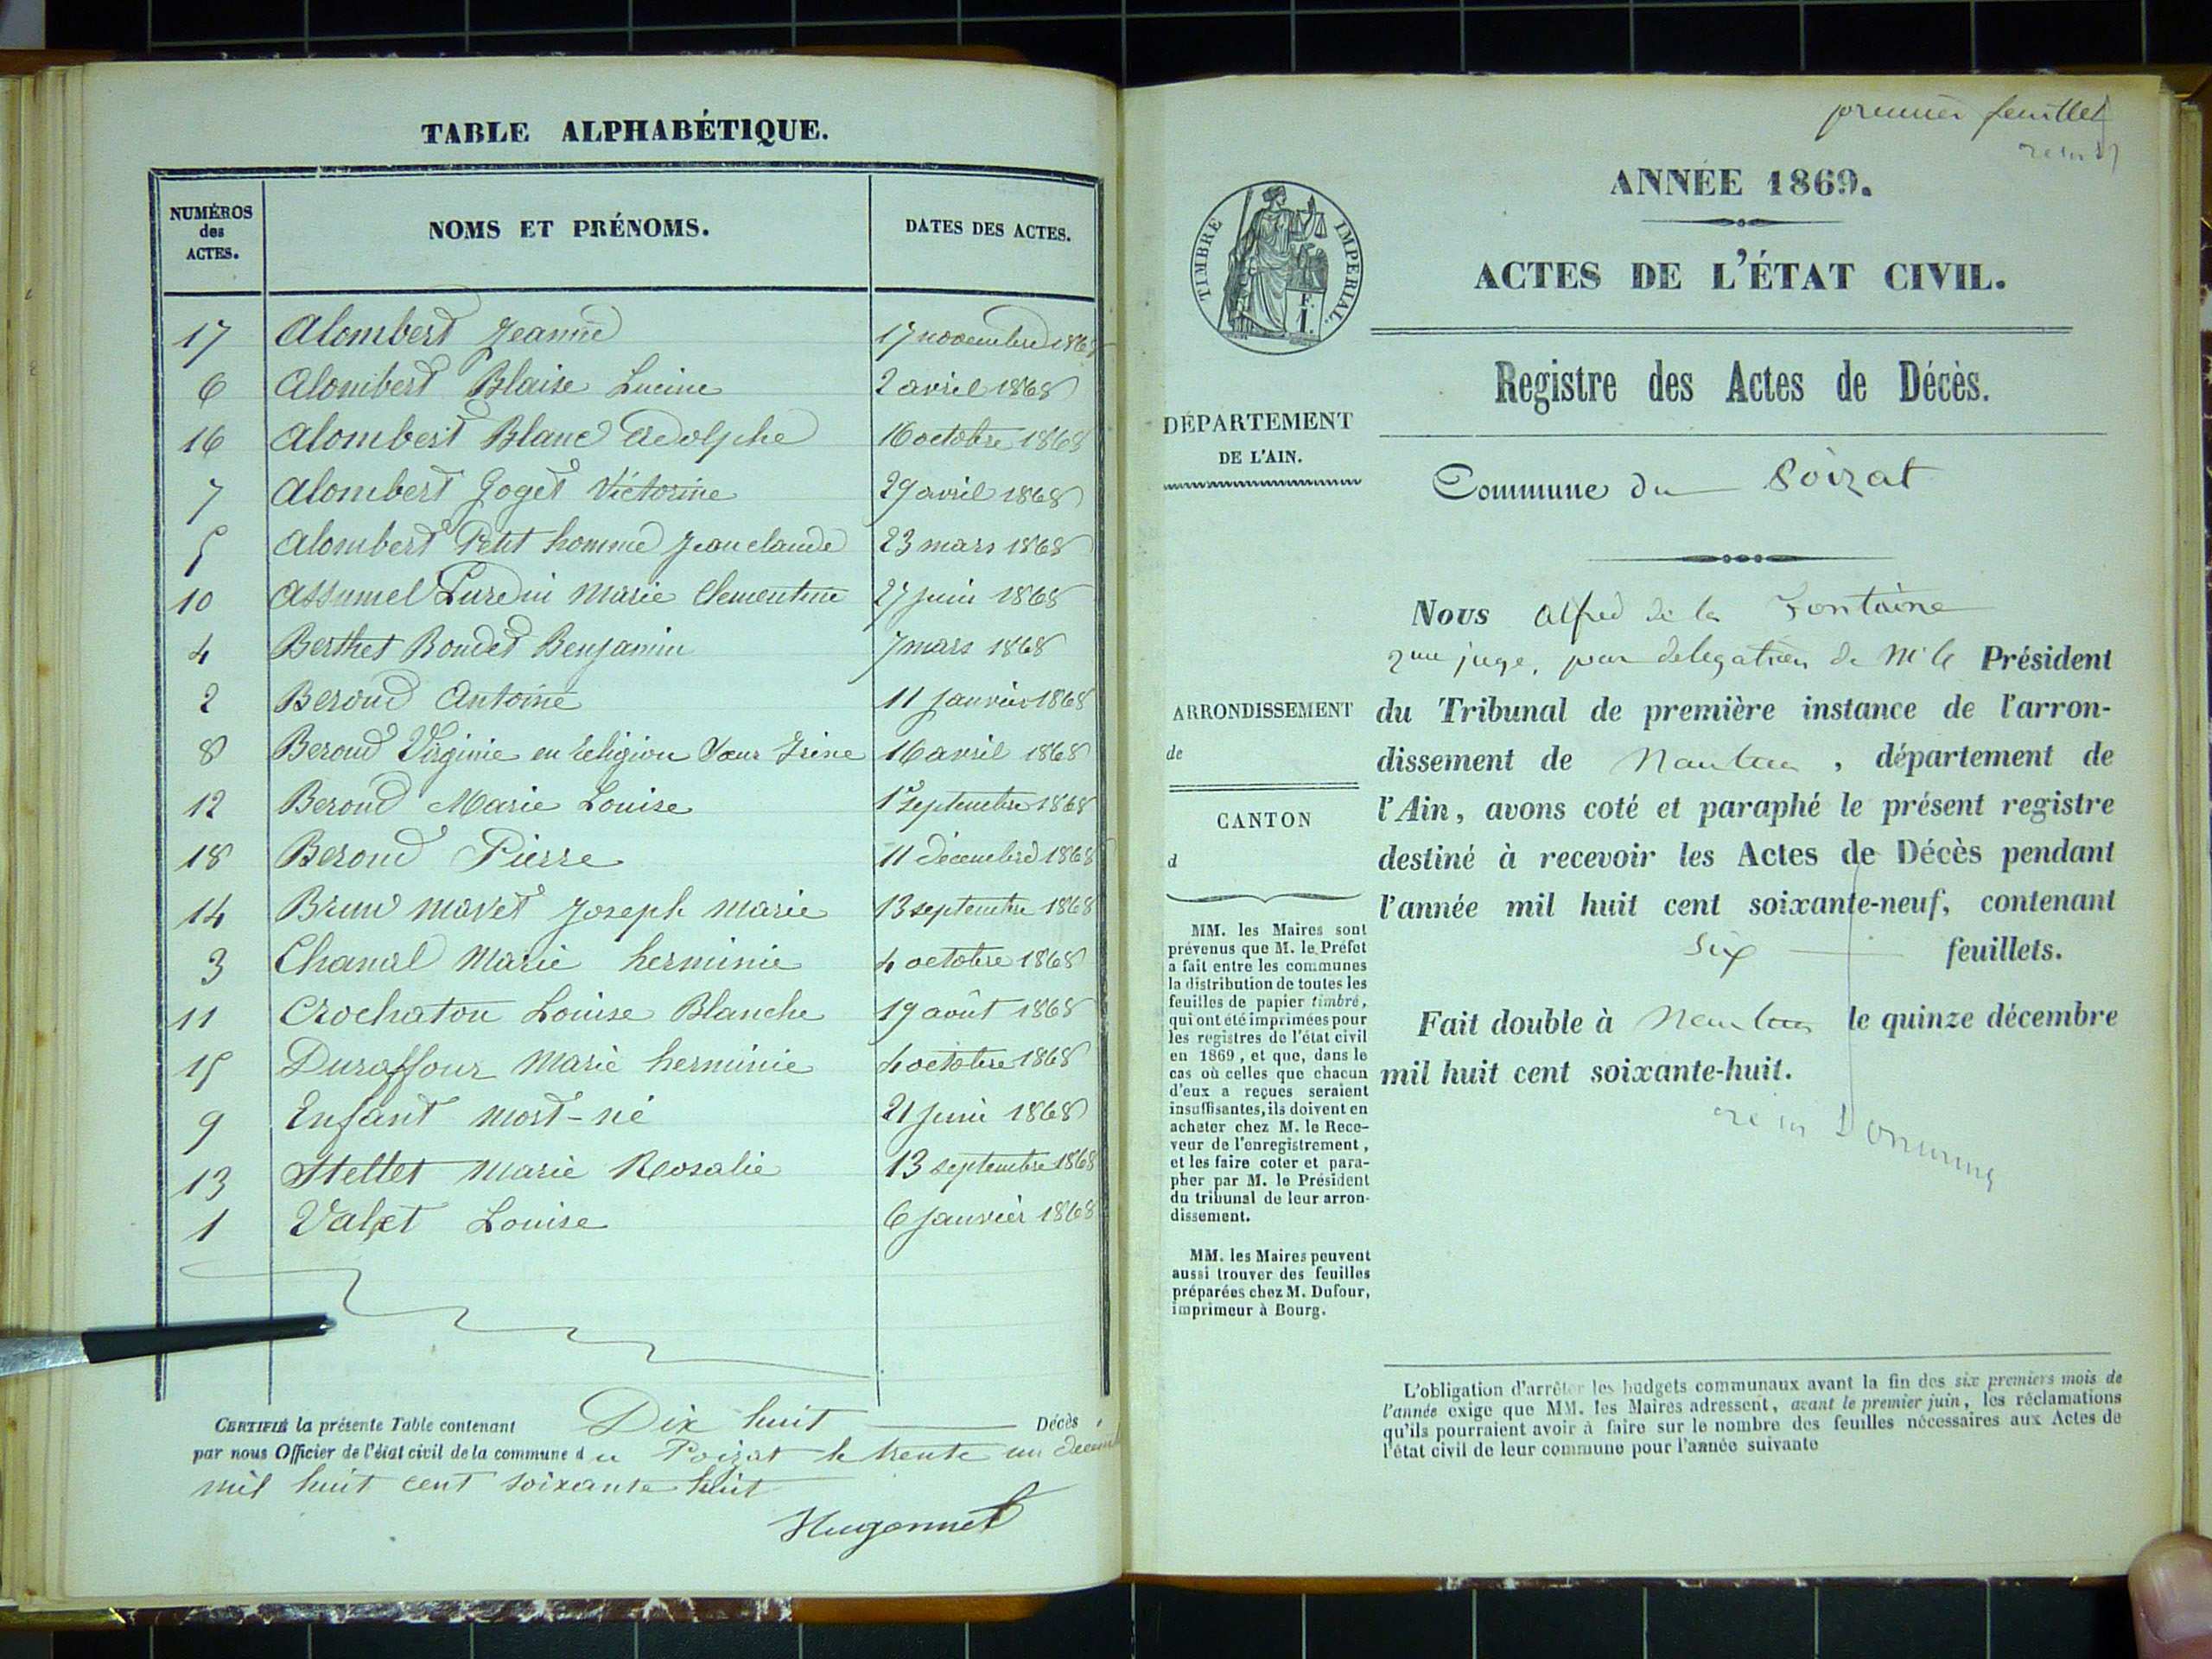 TABLE ALPHABÉTIQUE.
NUMÉROS des ACTES.
NOMS ET PRÉNOMS.
DATES DES ACTES.
17 Alombert Jeanne 17 novembre 1868
6 Alombert Blaise Lucine 2 avril 1868
16 Alombert Blanc Adolphe 16 octobre 1868
7 Alombert Goget Victorine 29 avril 1868
5 Alombert Petit homme Jean claude 23 mars 1868
10 Assumel Lurdin Marie Clementine 27 juin 1868
4 Berthet Bondet Benjamin 7 mars 1868
2 Beroud Antoine 11 janvier 1868
8 Beroud Virginie en religion Sœur Irine 16 avril 1868
12 Beroud Marie Louise 1er septembre 1868
18 Beroud Pierre 11 décembre 1868
14 Brun mavet Joseph Marie 13 septembre 1868
3 Marie herminie 4 octobre 1868
11 Crochaton Louise Blanche 19 août 1868
15 Duraffour Marie herminie 4 octobre 1868
9 Enfant mort-né 21 juin 1868
13 Mettet Marie Rosalie 13 septembre 1868
1 Valet Louise 6 janvier 1868
CERTIFIÉ la présente Table contenant Dix huit Décès
par nous Officier de l'état civil de la commune du Poizat le trente un
mil huit cent soixante huit
Hugonnet
premier feuillet
ANNÉE 1869.
TIMBRE IMPERIAL.
ACTES DE L'ÉTAT CIVIL.
Registre des Actes de Décès.
DÉPARTEMENT
DE L'AIN.
Commune du Poizat
Nous Alfred de la Fontaine
juge, par delegation de Mr le Président
du Tribunal de première instance de l'arron-
dissement de Nantua, département de
l'Ain, avons coté et paraphé le présent registre
destiné à recevoir les Actes de Décès pendant
l'année mil huit cent soixante-neuf, contenant
six feuillets.
Fait double à Nantua le quinze décembre
mil huit cent soixante-huit.
ARRONDISSEMENT
de
CANTON
d
MM. les Maires sont
prévenus que M. le Préfet
a fait entre les communes
la distribution de toutes les
feuilles de papier timbré,
qui ont été imprimées pour
les registres de l'état civil
en 1869, et que, dans le
cas où celles que chacun
d'eux a reçues seraient
insuffisantes, ils doivent en
acheter chez M. le Rece-
veur de l'enregistrement,
et les faire coter et para-
pher par M. le Président
du tribunal de leur arron-
dissement.
MM. les Maires peuvent
aussi trouver des feuilles
préparées chez M. Dufour,
imprimeur à Bourg.
L'obligation d'arrêter les budgets communaux avant la fin des six premiers mois de
l'année exige que MM. les Maires adressent, avant le premier juin, les réclamations
qu'ils pourraient avoir à faire sur le nombre des feuilles nécessaires aux Actes de
l'état civil de leur commune pour l'année suivante